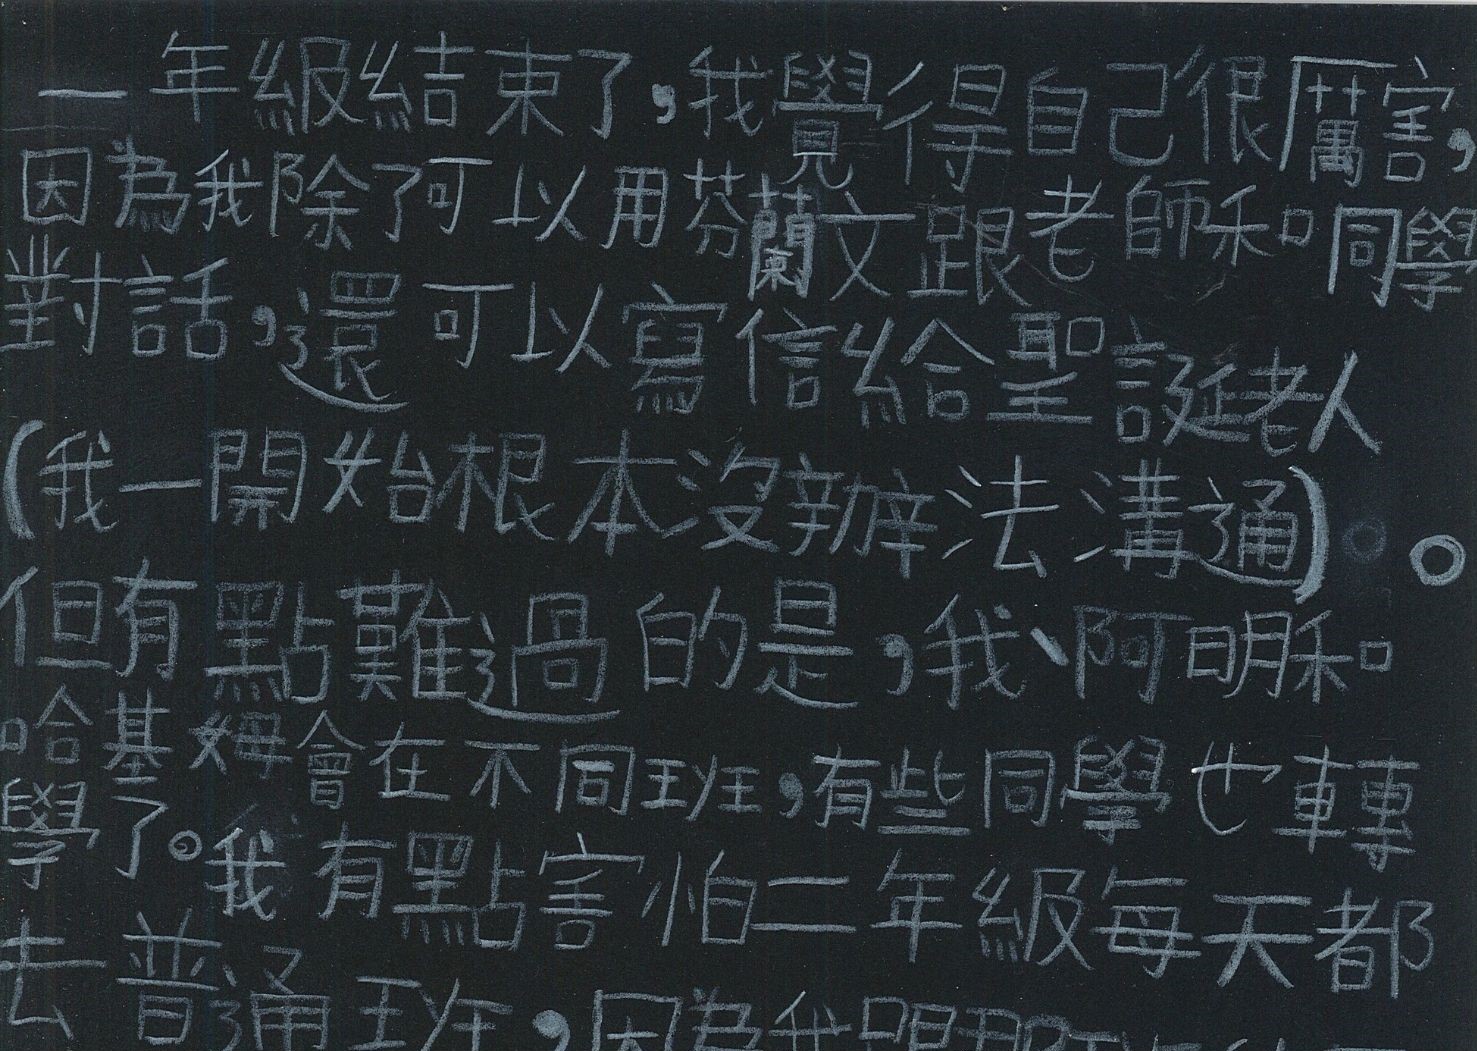 一年級結束了，我覺得自己很厲害，
因為我除了可以用芬蘭文跟老師和同學
對話，還可以寫信給聖誕老人
(我一開始根本沒辦法溝通)。
但有點難過的是，我、阿明和
哈基姆會在不同班，有些同學也轉
學了。我有點害怕二年級每天都
去普通班，因為我跟那